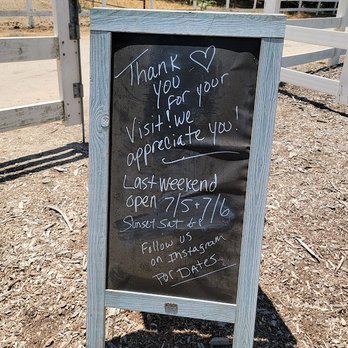 Thank
you ♡
for your
Visit! We
appreciate you!
Last weekend
open 7/5 + 7/6
Sunset Sat
Follow us
on Instagram
For Dates